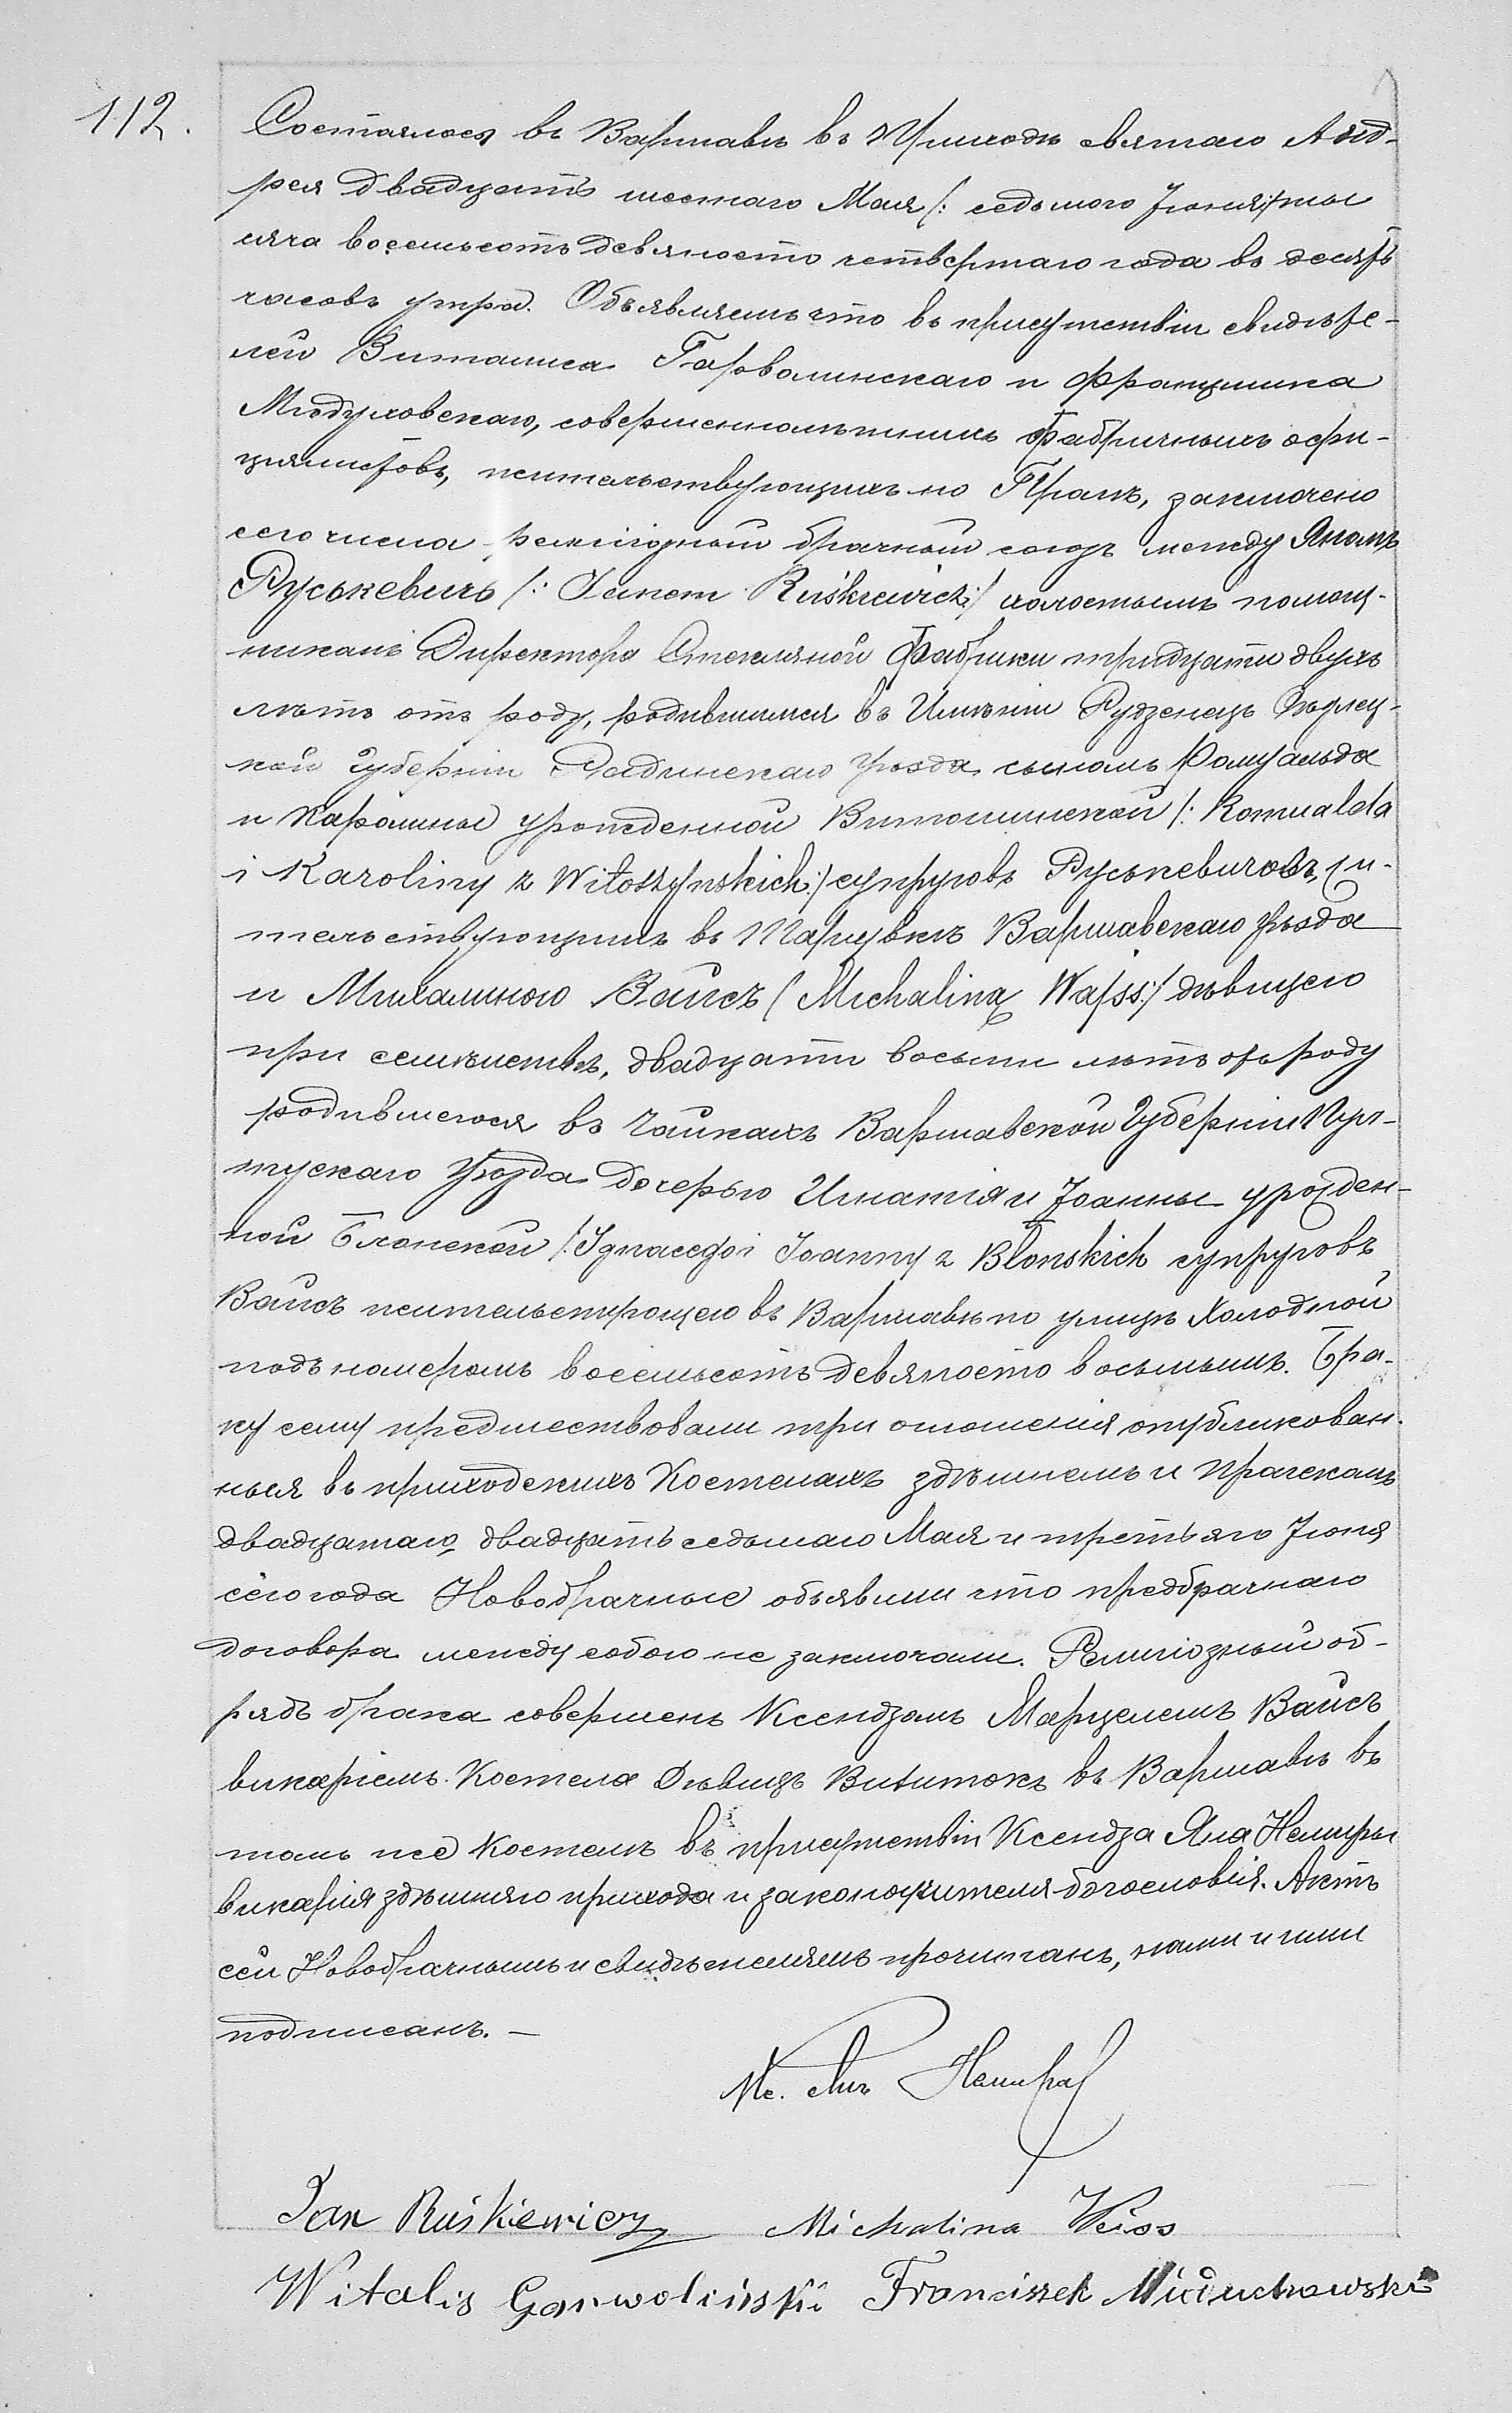 112.
Состоялось въ Варшавѣ въ Приходѣ святаго Анд-
рея двадцать шестаго Мая /: седьмого Іюня :/ тыс
яча восемьсотъ девяносто четвертаго года въ десять
часовъ утра. Объявляемъ что въ присутствіи свидѣте-
лей Виталиса Гарволинскаго и Францишка
Мюдуховскаго, совершеннолѣтнихъ фабричныхъ офи-
ціялистовъ, жительствующихъ по Прагѣ, заключено
сего числа религіозный брачный союзъ между Яномъ
Руськевичъ /: Janem Ruśkiewicz :/ холостымъ помощ-
никомъ Директора Стеклянной Фабрики тридцати двухъ
лѣтъ отъ роду, родившимся въ Имѣніи Рудзенецъ Сѣдлец-
кой Губерніи Радинскаго уѣзда сыномъ Ромуальда
и Каролины урожденной Витошинской /: Romualda
i Karoliny z Witoszynskich :/ супруговъ Руськевичовъ, жи-
тельствующимъ въ Таргувкѣ Варшавскаго уѣзда
и Михалиною Вайсъ /: Michaliną Wajss :/ дѣвицею
при семействѣ, двадцати восьми лѣтъ отъ роду
родившеюся въ Чайкахъ Варшавской Губерніи Пул-
тускаго уѣзда дочерью Игнатія и Іоанны урожден-
ной Блонской /: Ignacego i Joanny z Blonskich супруговъ
Вайсъ жительствующею въ Варшавѣ по улицѣ Холодной
подъ номеромъ восемьсотъ девяносто восьмымъ. Бра-
ку сему предшествовали три оглашенія опубликован-
ныя въ приходскихъ Костелахъ здѣшнемъ и Прагскомъ
двадцатаго, двадцать седьмаго Мая и третьяго Іюня
сего года Новобрачные объявили что предбрачнаго
договора между собою не заключали. Религіозный об-
рядъ брака совершенъ Ксендзомъ Марцелемъ Вайсъ
викаріемъ Костела Дѣвицъ Визитокъ въ Варшавѣ въ
томъ же Костелѣ въ присутствіи Ксендза Яна Немиры
викарія здѣшняго прихода и законоучителя богословія. Актъ
сей Новобрачнымъ и свидѣтелямъ прочитанъ, нами и ними
подписанъ. —
Кс. Янъ Немира
Jan Ruśkiewicz Michalina Weiss
Witalis Garwoliński Franciszek Miuduchowski